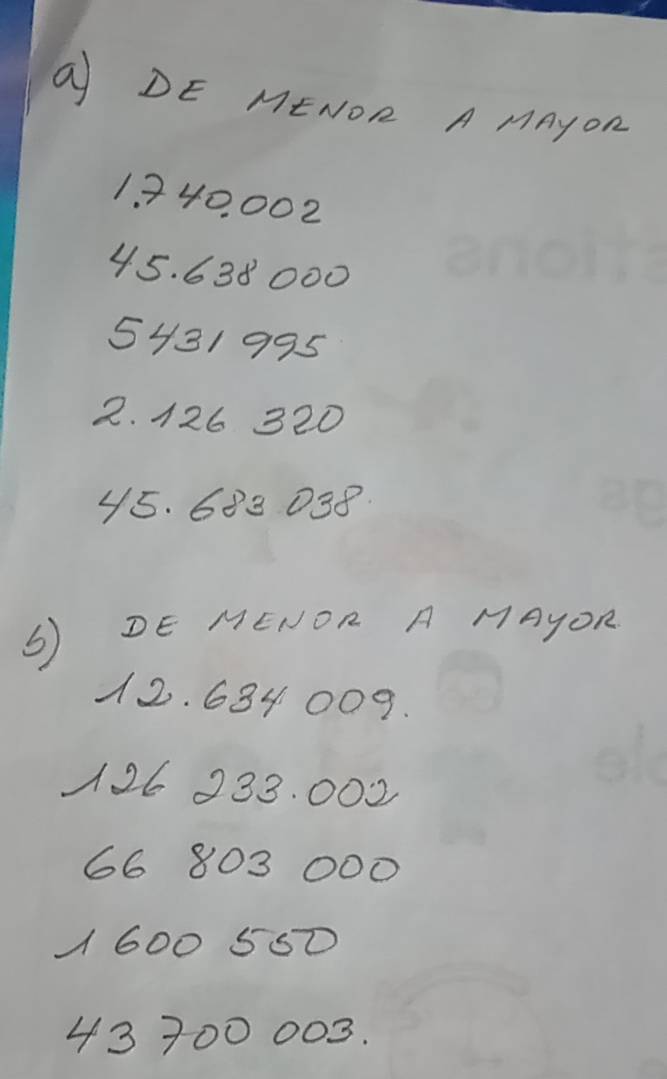 a) DE MENOR A MAYOR
1.740.002
45.638 000
5431 995
2.126 320
45.683 038.
b) DE MENOR A MAYOR
12.634 009.
126 233.002
66 803 000
1 600 550
43 700 003.